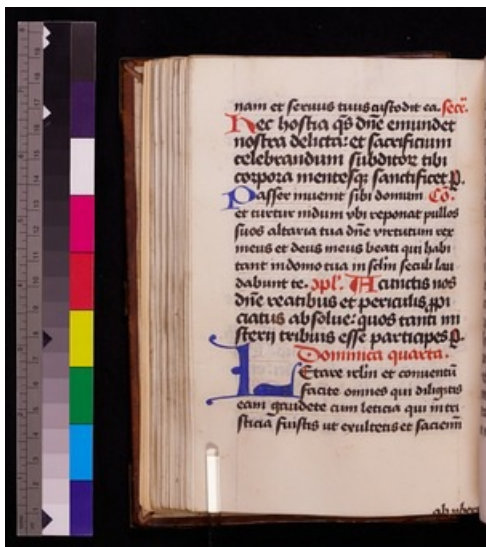 nam et seruus tuus custodit ea. secr̄.
Hec hostia qs̄ dn̄e emundet
nostra delicta: et sacrificium
celebrandum subditoꝝ tibi
corpora mentesqꝫ sanctificet P.
Passer inuenit sibi domum Cō.
et turtur nidum vbi reponat pullos
suos altaria tua dn̄e virtutum rex
meus et deus meus beati qui habi
tant in domo tua in sclm̄ seculi lau
dabunt te. ꝯpl'. A cunctis nos
dn̄e reatibus et periculis ꝓpi
ciatus absolue: quos tanti mi
sterij tribuis esse participes P.
Dominica quarta.
LEtare irlm̄ et conuentū
facite omnes qui diligitis
eam gaudete cum leticia qui in tri
sticia fuistis ut exultetis et saciemī
ab vber